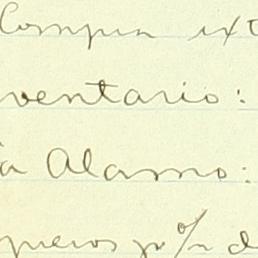 Compra ext
ventario:
a Alamo:
queros p%